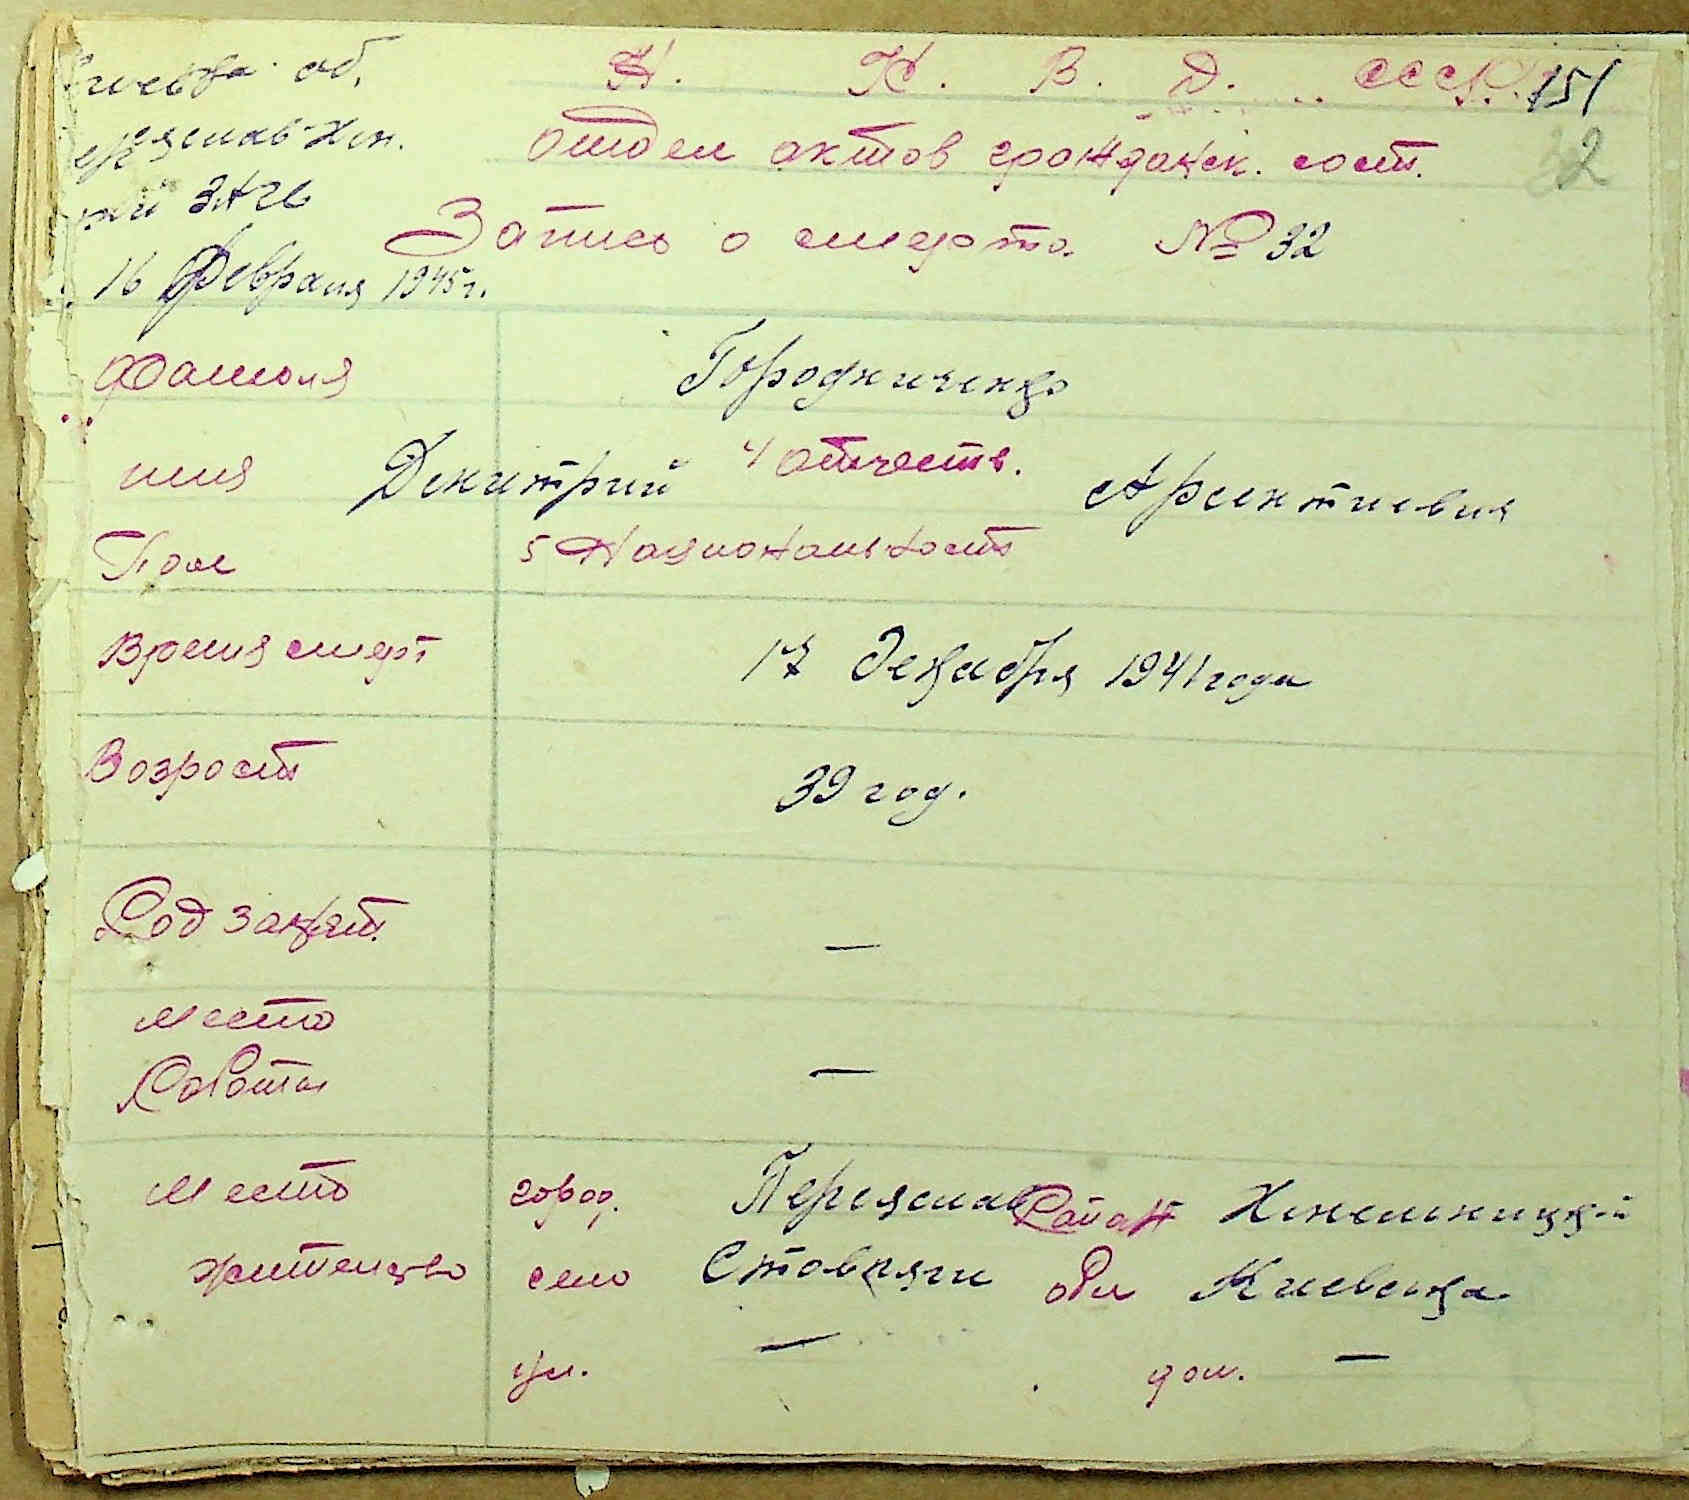 Киевска об.
Переяслав-Хм.
кий ЗАГС
16 февраля 1945 г.
Н. К. В. Д. СССР. 151
отдел актов граждански. сост. 32
Запись о смерти № 32
Фамилия Городниченко
имя Дмитрий 4 отчеств. Арсентиевич
Пол 5 Национальность
Время смерт 17 декабря 1941 года
Возраст 39 год.
Род занят. —
Место —
Работы
Место город. Переяслав Район Хмельницкий
жительство село Стовпяги обл Киевска
ул. — дом. —